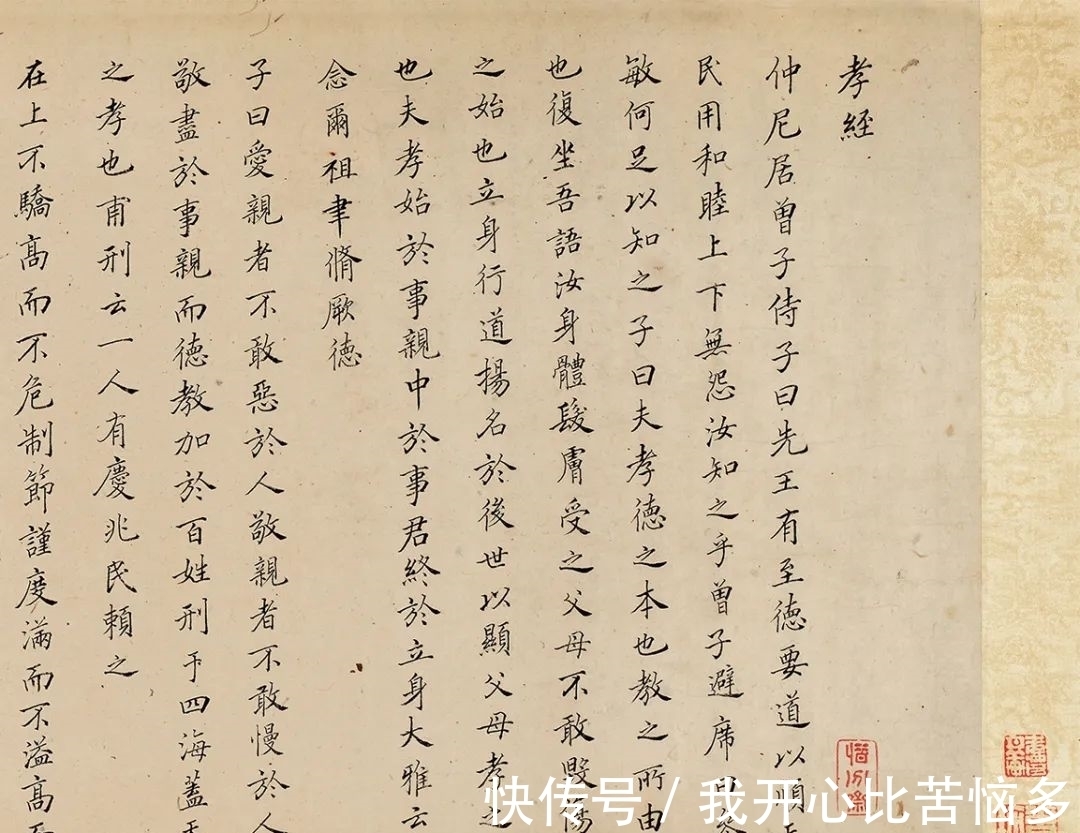 孝經
仲尼居曾子侍子曰先王有至德要道以順
民用和睦上下無怨汝知之乎曾子避席曰
敏何足以知之子曰夫孝德之本也教之所由
也復坐吾語汝身體髮膚受之父母不敢毀傷
之始也立身行道揚名於後世以顯父母孝之
也夫孝始於事親中於事君終於立身大雅云
念爾祖聿脩厥德
子曰愛親者不敢惡於人敬親者不敢慢於人
敬盡於事親而德教加於百姓刑于四海蓋
之孝也甫刑云一人有慶兆民賴之
在上不驕高而不危制節謹度滿而不溢高
快传号 / 我开心比苦恼多